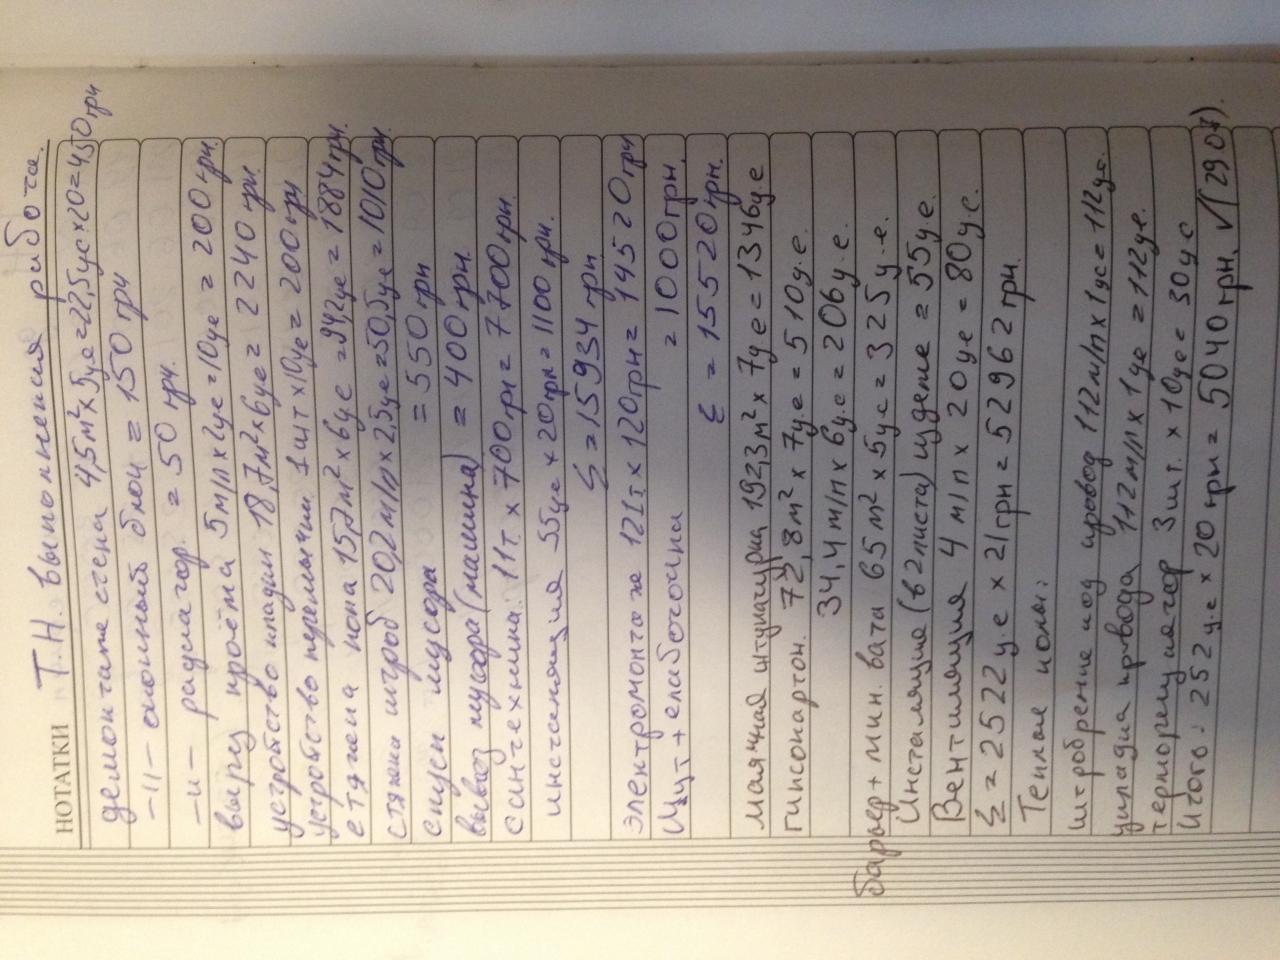 НОТАТКИ Т.Н. выполнения работа.
демонтаж стена 4,5м² х 5уе=22,5уе х20=450грн
-11- оконный блок = 150 грн
-н- радиатор. = 50 грн.
вырез проёма 5м/п х 2уе=10уе = 200 грн.
устройство кладки 18,7м² х 6уе = 2240 грн.
устройство перемычки 1шт х10уе = 200грн
стяжка пола 15,7м² х 6уе =94,2уе = 1884грн.
стяжка штроб 20,2м/п х 2,5уе=50,5уе = 1010грн
спуск мусора = 550 грн
вывоз мусора (машина) = 400 грн.
сантехника. 11т. х 700грн = 7700грн.
инсталяция 55уе х 20грн = 1100 грн.
Σ = 15934 грн
электромонтаж 121т. х 120грн = 14520грн
Щит + слаботочка = 1000грн.
Σ = 15520грн.
маячная штукатурка 192,3м² х 7уе = 1346уе
гипсокартон. 72,8м² х 7у.е = 510у.е.
34,4м/п х 6у.е = 206у.е.
барьер + мин. вата 65м² х 5уе = 325у.е.
Инсталяция (в 2 листа) изделие = 55у.е.
Вентиляция 4 м/п х 20уе = 80у.е.
Σ = 2522 у.е х 21грн = 52962 грн.
Теплые полы:
штробрение под провод 112м/п х 1уе= 112уе.
укладка провода 112м/п х 1уе = 112уе.
терморегулятор 3шт. х 10уе = 30у.е
Итого: 252у.е х 20 грн = 5040 грн. √(29.07).